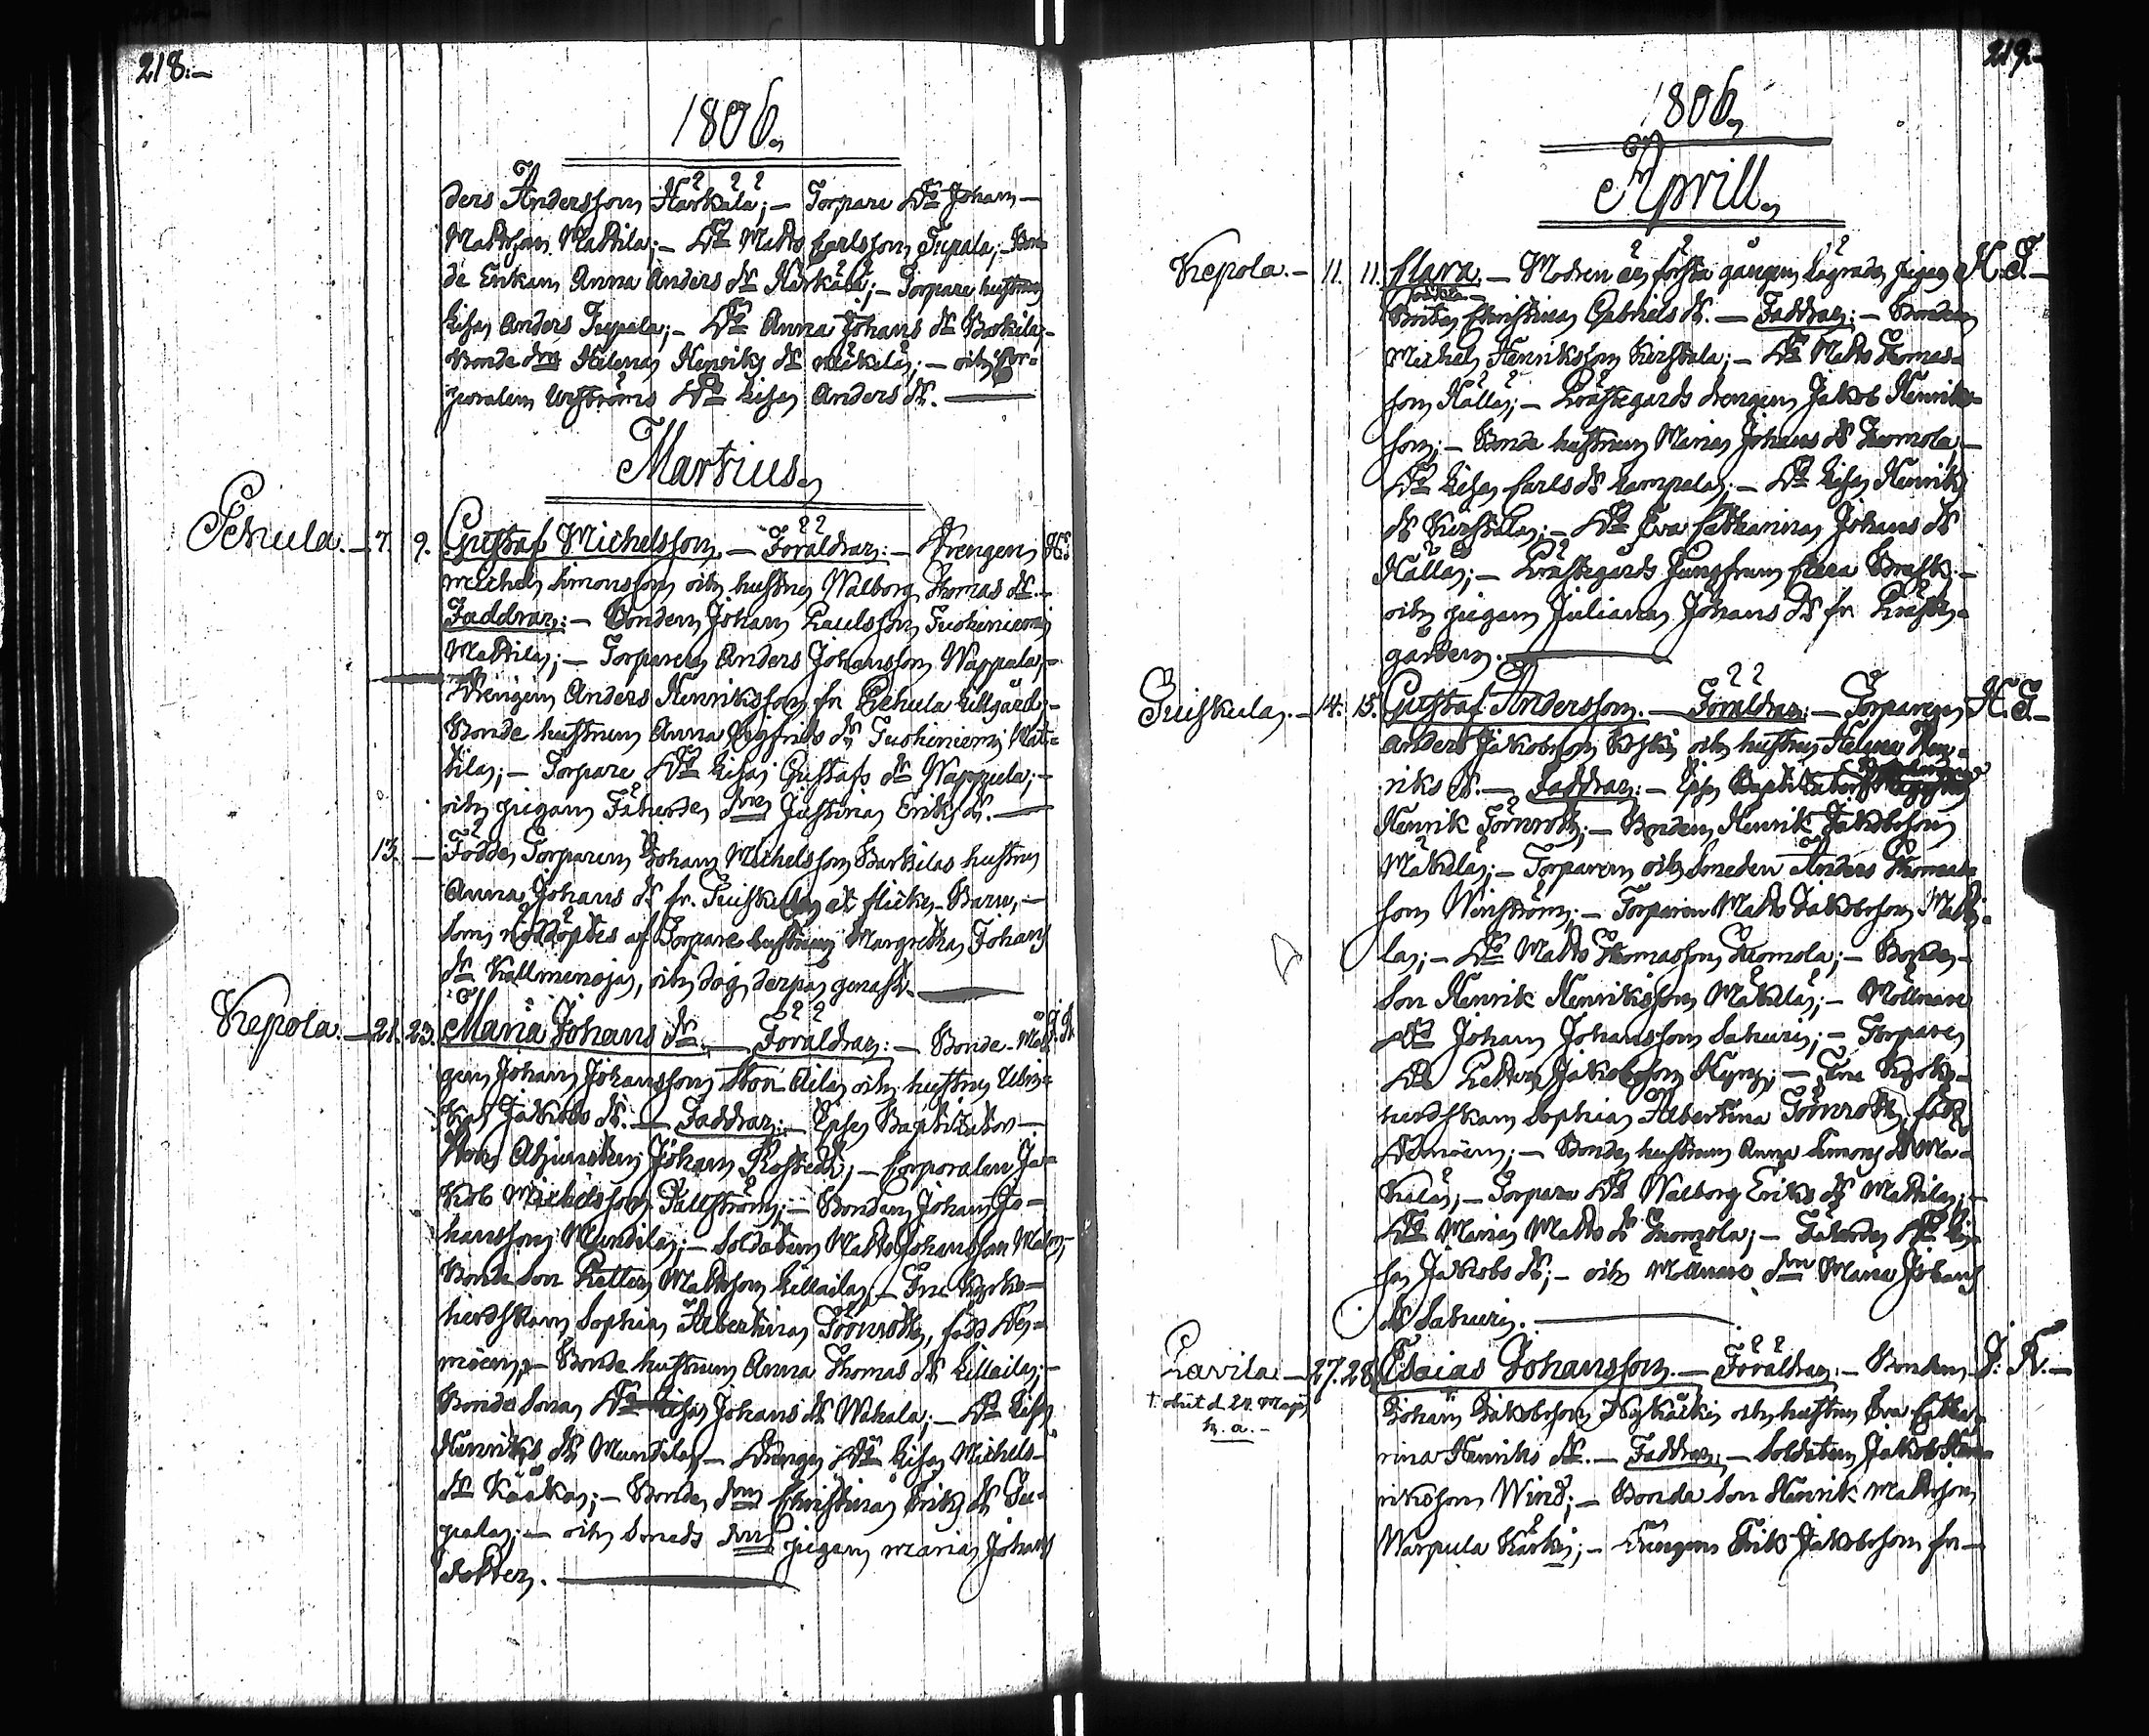 218.—
1806.
ders Andersson Härkälä; — Torpare D:o Johan —
Mattsson Mattila; — D:o Matts Carlsson Tupala; — Bon-
de Enkan Anna Anders dr Härkälä; — Torpare hustrun
Lisa Anders Tupala; — D:o Anna Johans dr
Bonde dm Helena Henriks dr Mäkilä; — och Cor-
poralen D:o Lisa Anders dr. —
Martius.
Pehula. — 7. 9. Gustaf Michelsson. — Föräldrar: — Drengen
Michel Simonsson och hustru Walborg Thomas dr. —
Faddrar: — Bonden Johan Paulsson Tuohiniemi
Mattila; — Torparen Anders Johansson Wappula; —
Drengen Anders Henriksson fr. Pehula Lillgård; —
Bonde hustrun Anna Sigfrids dr Tuohiniemi Mat-
tila; — Torpare D:o Lisa Gustafs dr Wappula; —
och pigan Fäherde dm Justina Eriks dr. —
13. — Födde Torparen Johan Michelsson hustru
Anna Johans dr fr. Tuiskula et flicke-Barn, —
som nöddöptes af Torpare hustrun Margretha Johans
dr, och dog derpå genast. —
Kepola. — 21. 23. Maria Johans dr. — Föräldrar: — Bonde-Må-
gen Johan Johansson och hustru Ulri-
ka Jakobs dr. — Faddrar: — Ipse Baptizator —
Johan; — Corporalen Ja-
kob Michelsson; — Bonden Johan Jo-
hansson Mundila; — Soldaten Matts Johansson
Bonde Son Petter Mattsson Lillaila; — Fru Kyrko-
herdskan Sophia Albertina Törnroth, född
— Bonde hustrun Anna Thomas dr Lillaila; —
Bonde Sona D:o Lisa Johans dr Wahala; — D:o Lisa
Henriks dr Mundila; — Drenge D:o Lisa Michels-
dr; — Bonde dm Christina Eriks dr Tu-
pala; — och dm pigan Maria Johans
dotter. —
219.—
1806.
Aprill.
Kepola. — 11. 11. Clara. — Modren är första gången lägrade pigan H. T. —
Brita Christina Gabriels dr. — Faddrar: — Bonden
Michel Henriksson Kirstala; — D:o Matts Thomas-
son Källä; — Prästegårds drengen Jakob Henriks-
son; — Bonde hustrun Maria Johans dr Tuomola; —
D:o Lisa Carls dr Lampala; — D:o Lisa Henriks
dr Kirstala; — D:o Eva Catharina Johans dr
Källä; — Prästegårds Jungfrun Clara; —
och pigan Juliana Johans dr fr. Präste-
gården. —
Tuiskula. — 14. 15. Gustaf Andersson. — Föräldrar: — Torparen H. T. —
Anders Jakobsson och hustru Helena Hen-
riks dr. — Faddrar: — Ipse Baptizator
Henrik Törnroth; — Bonden Henrik Jakobsson
Mäkilä; — Torparen och Smeden Anders Thomas-
son; — Torparen Matts Jakobsson Matti-
la; — D:o Matts Thomasson Tuomola; — Bonde-
Son Henrik Henriksson Mäkilä; — Möllnare
D:o Johan Johansson Sahuri; — Torparen
D:o Petter Jakobsson; — Fru Kyrko-
herdskan Sophia Albertina Törnroth, född
— Bonde hustrun Anna Simons dr Mä-
kilä; — Torpare D:o Walborg Eriks dr Mattila; —
D:o Maria Matts dr Tuomola; — D:o Li-
sa Jakobs dr; — och Möllnare dm Maria Johans
dr Sahuri. —
Lavila — 27. 28. Esaias Johansson. — Föräldrar: — Bonden J. R. —
† obiit d. 24. Maji
h. a. —
Johan Jakobsson och hustru Eva Catha-
rina Henriks dr. — Faddrar: — Soldaten Jakob Hen-
riksson Wind; — Bonde Son Henrik Mattsson
Warpula; — Drengen Erik Jakobsson fr. —